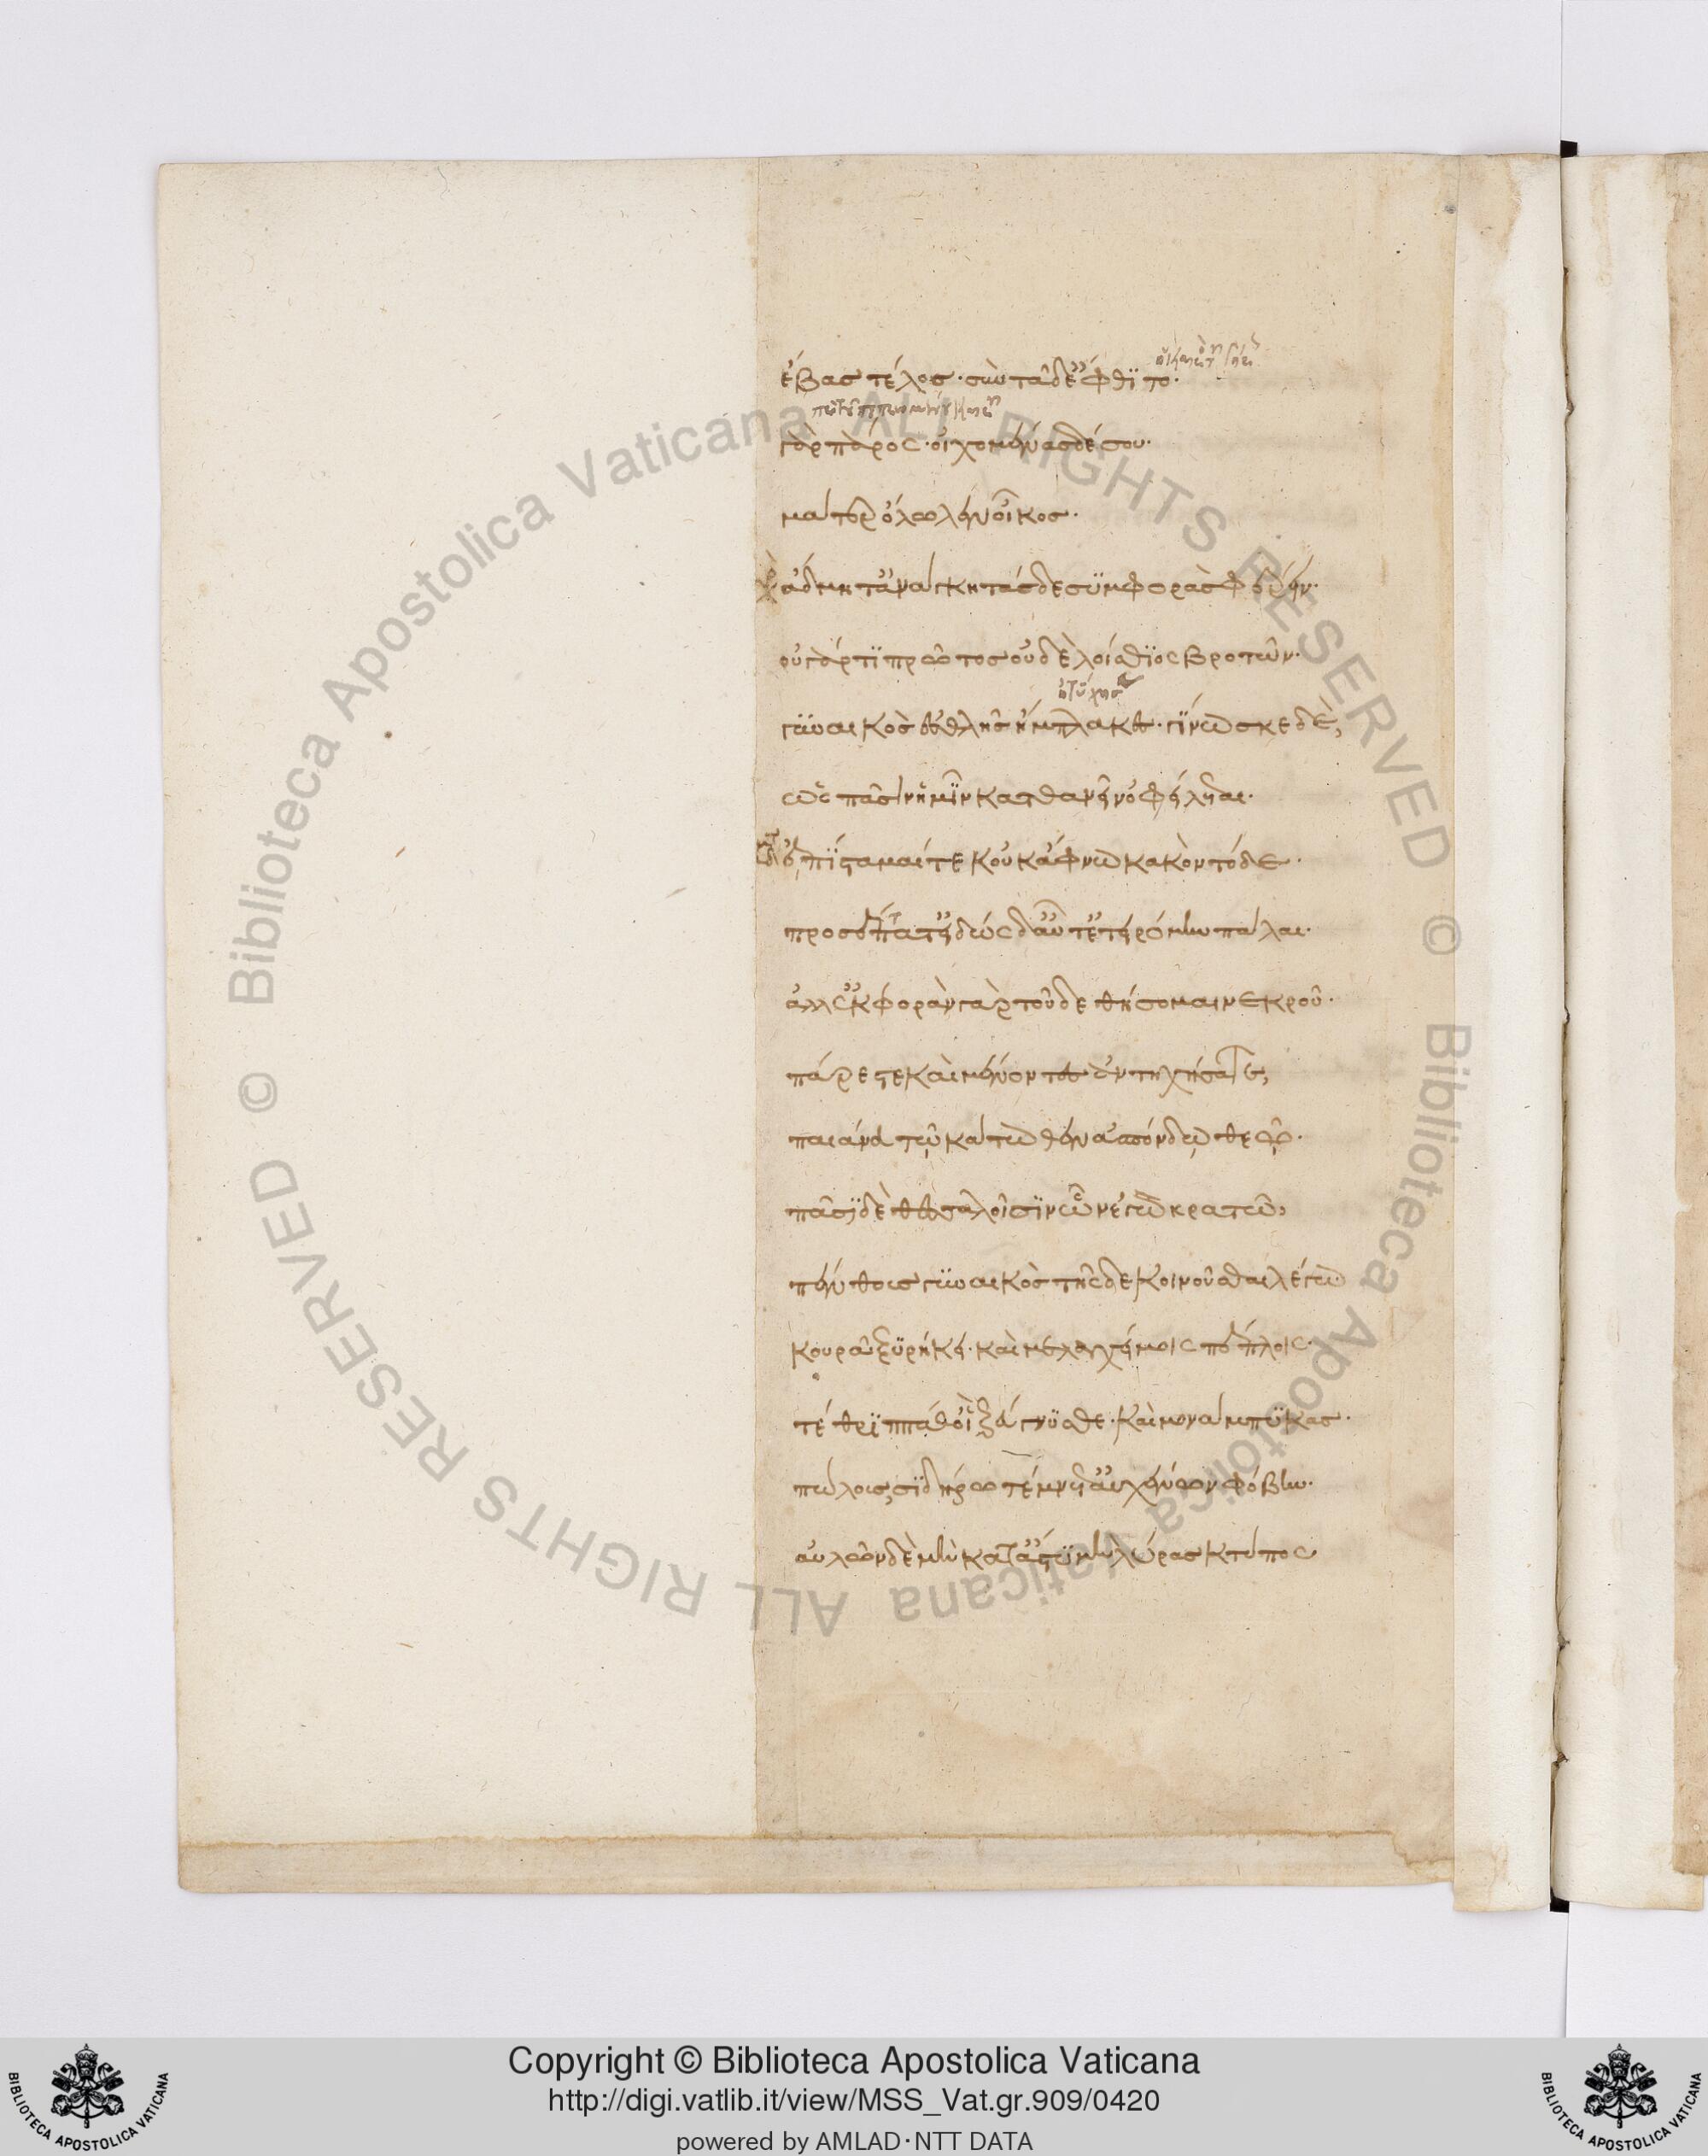 ἔβας τέλος· σὺν τᾶδ' ἔφθιτο·
γὰρ πάρος· οἰχομένας δέ σου·
μᾶτερ ὄλωλεν οἶκος·
ἄδμητ' ἀνάγκη τάσδε συμφορὰς φέρειν·
οὐ γάρ τι πρῶτος οὐδὲ λοίσθιος βροτῶν·
γυναικὸς ἐσθλῆς ἤμπλακες· γίνωσκε δέ,
ὡς πᾶσιν ἡμῖν κατθανεῖν ὀφείλεται·
ἐπίσταμαί τε κοὐκ ἄφνω κακὸν τόδε·
προσέπτατ' εἰδὼς δ' αὔτ' ἐτειρόμην πάλαι·
ἀλλ' ἐκφορὰν γὰρ τοῦδε θήσομαι νεκροῦ·
πάρεστε καὶ μένοντες ἀντηχήσατε,
παιᾶνα τῷ κάτωθεν ἀσπόνδῳ θεῷ·
πᾶσι δὲ θεσσαλοῖσιν ὧν ἐγὼ κρατῶ,
πένθους γυναικὸς τῆσδε κοινοῦσθαι λέγω
κουρᾷ ξυρήκει· καὶ μελαγχείμοις πέπλοις·
τέθριππά θ' οἳ ζεύγνυσθε· καὶ μονάμπυκας·
πώλους, σιδήρω τέμνετ' αὐχένων φόβην·
αὐλῶν δὲ μὴ κατ' ἄστυ μὴ λύρας κτύπος
Copyright © Biblioteca Apostolica Vaticana
http://digi.vatlib.it/view/MSS_Vat.gr.909/0420
powered by AMLAD·NTT DATA
BIBLIOTECA APOSTOLICA VATICANA
BIBLIOTECA APOSTOLICA VATICANA
© Biblioteca Apostolica Vaticana ALL RIGHTS RESERVED © Biblioteca Apostolica Vaticana ALL RIGHTS RESERVED